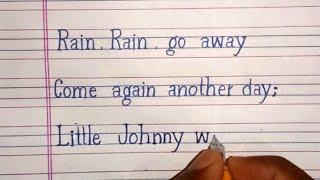 Rain, Rain, go away
Come again another day;
Little Johnny w